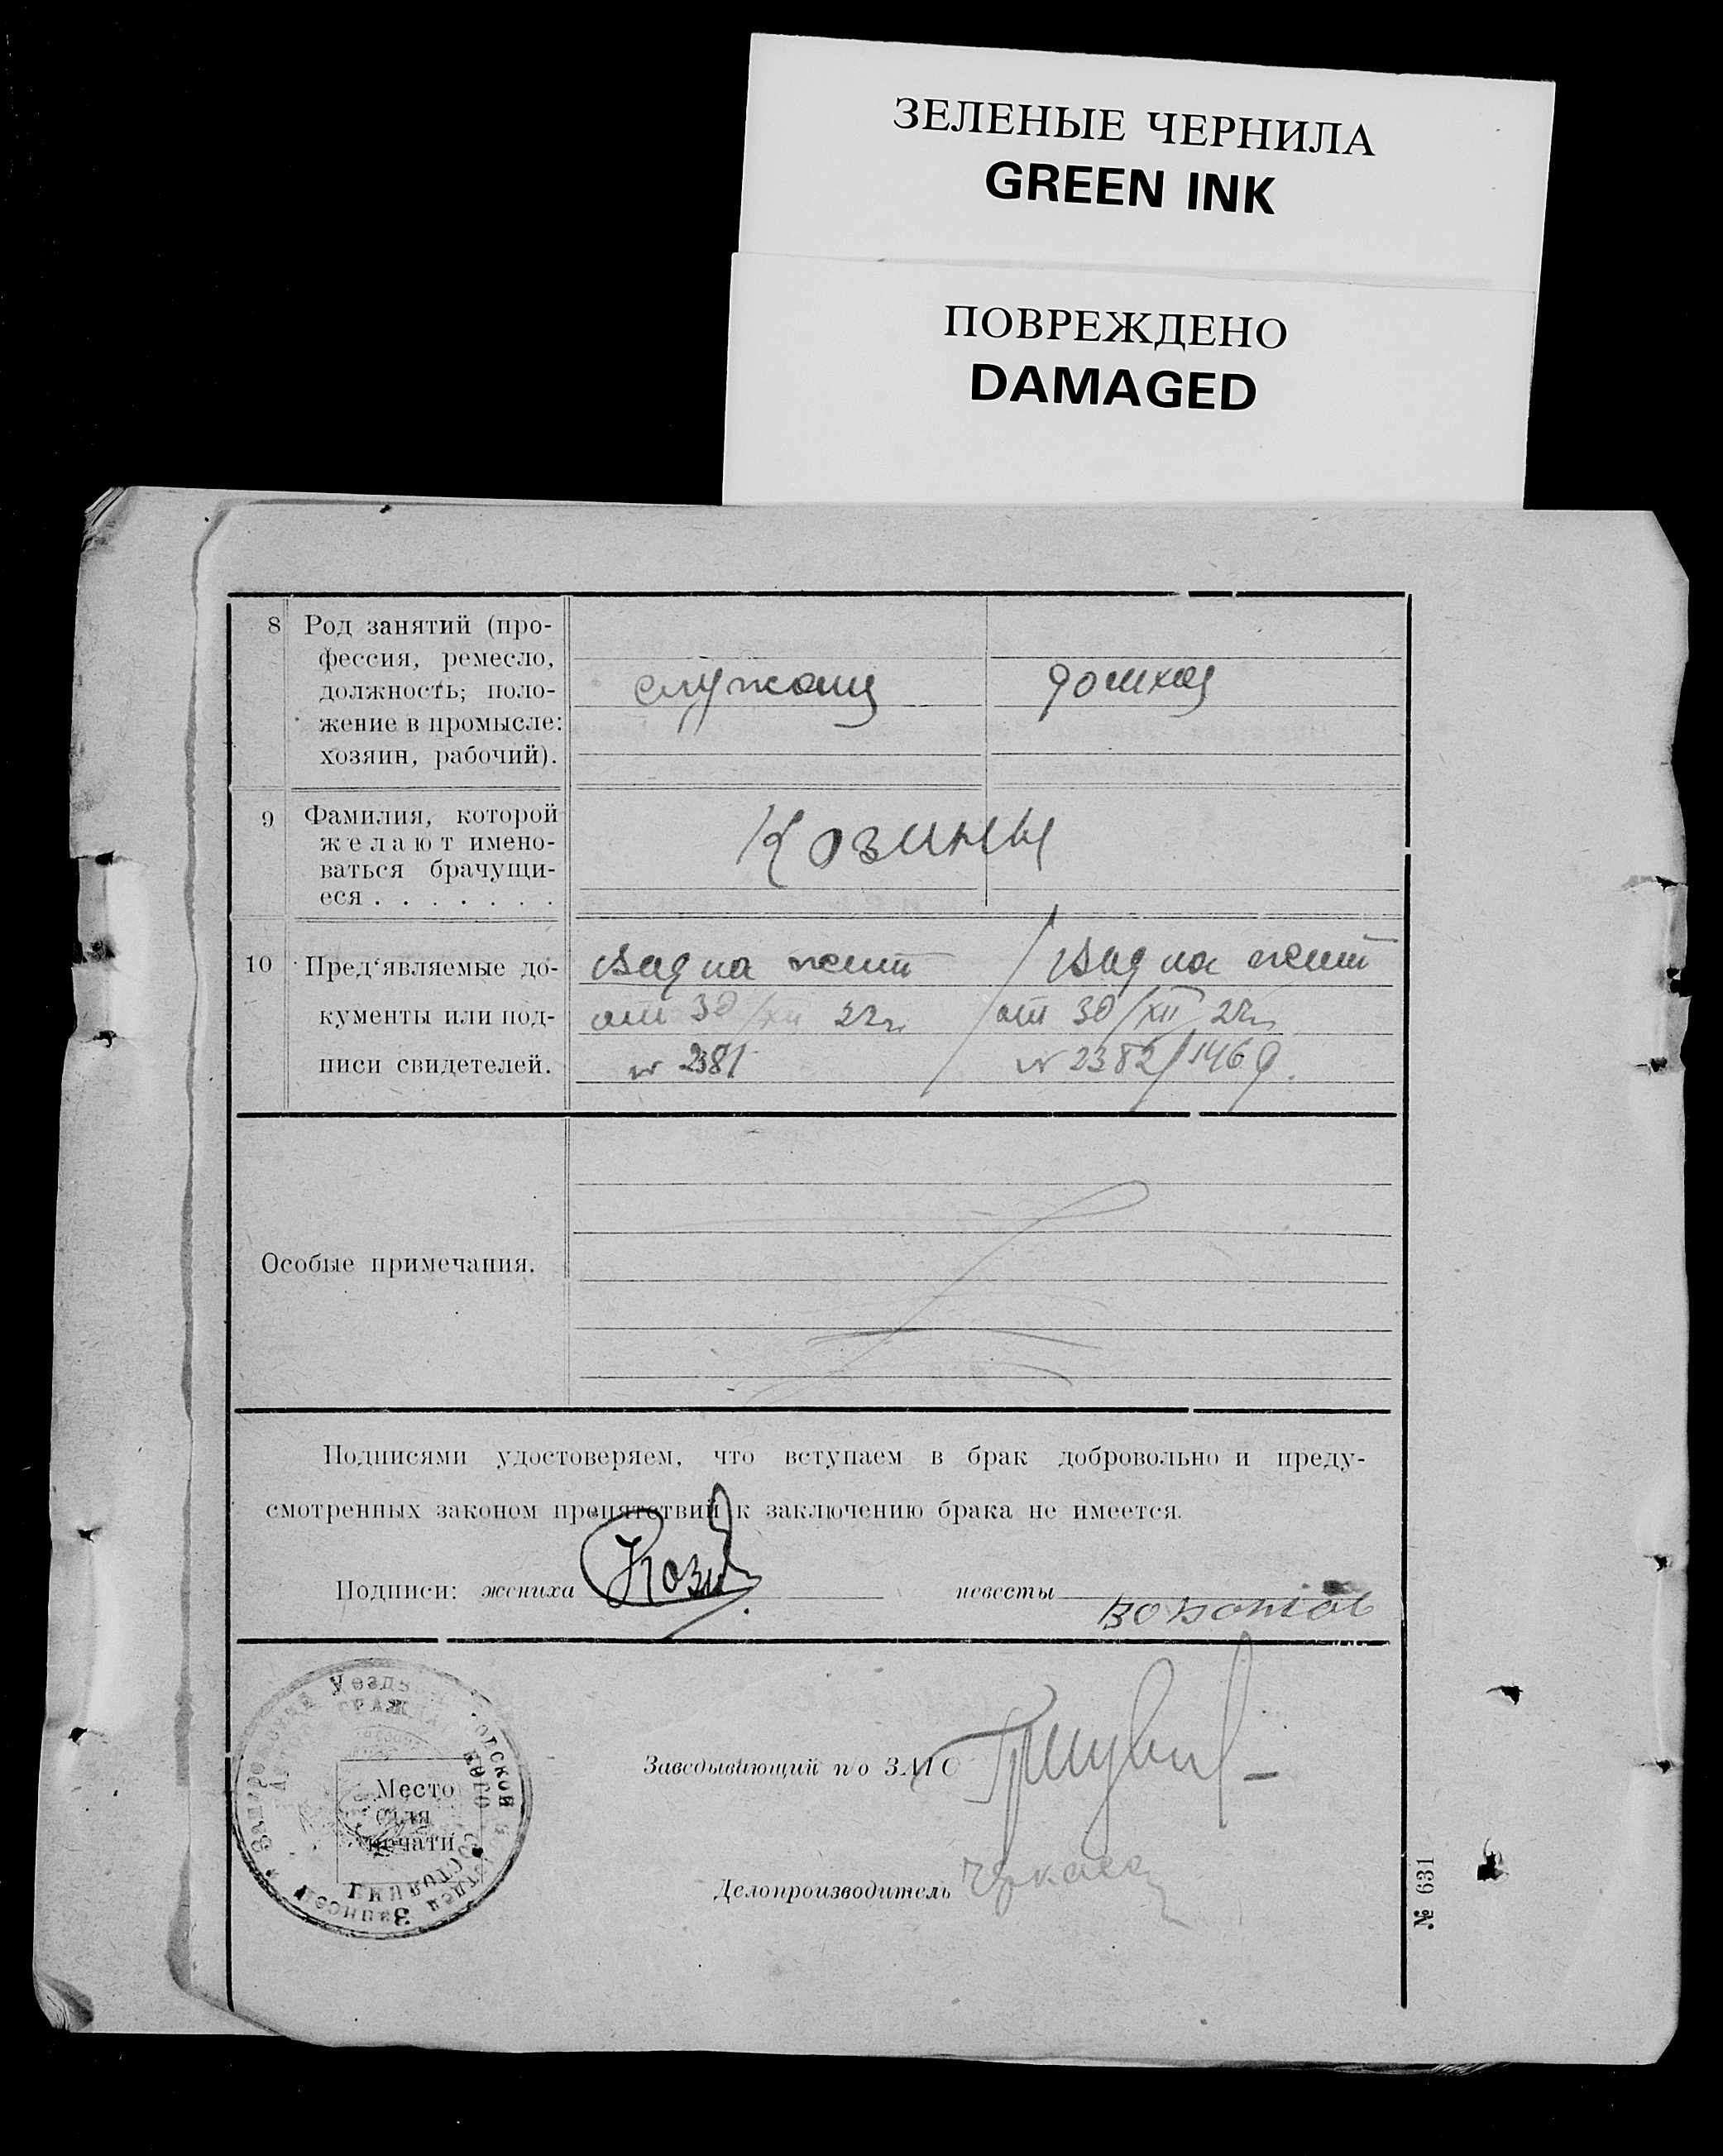 ЗЕЛЕНЫЕ ЧЕРНИЛА
GREEN INK
ПОВРЕЖДЕНО
DAMAGED
8 Род занятий (про-
фессия, ремесло,
должность; поло-
жение в промысле:
хозяин, рабочий).
служащ домхоз
9 Фамилия, которой
желают имено-
ваться брачущи-
еся . . . . . . .
Козины
10 Пред‘являемые до-
кументы или под-
писи свидетелей.
на жит / на жит
от 30/XII 22г от 30/XII 22г
№ 2381 № 2382/1469.
Особые примечания.
Подписями удостоверяем, что вступаем в брак добровольно и преду-
смотренных законом препятствий к заключению брака не имеется.
Подписи: жениха Козин невесты
Заведывающий п/о ЗАГС
Делопроизводитель
Место
для
печати
№ 631